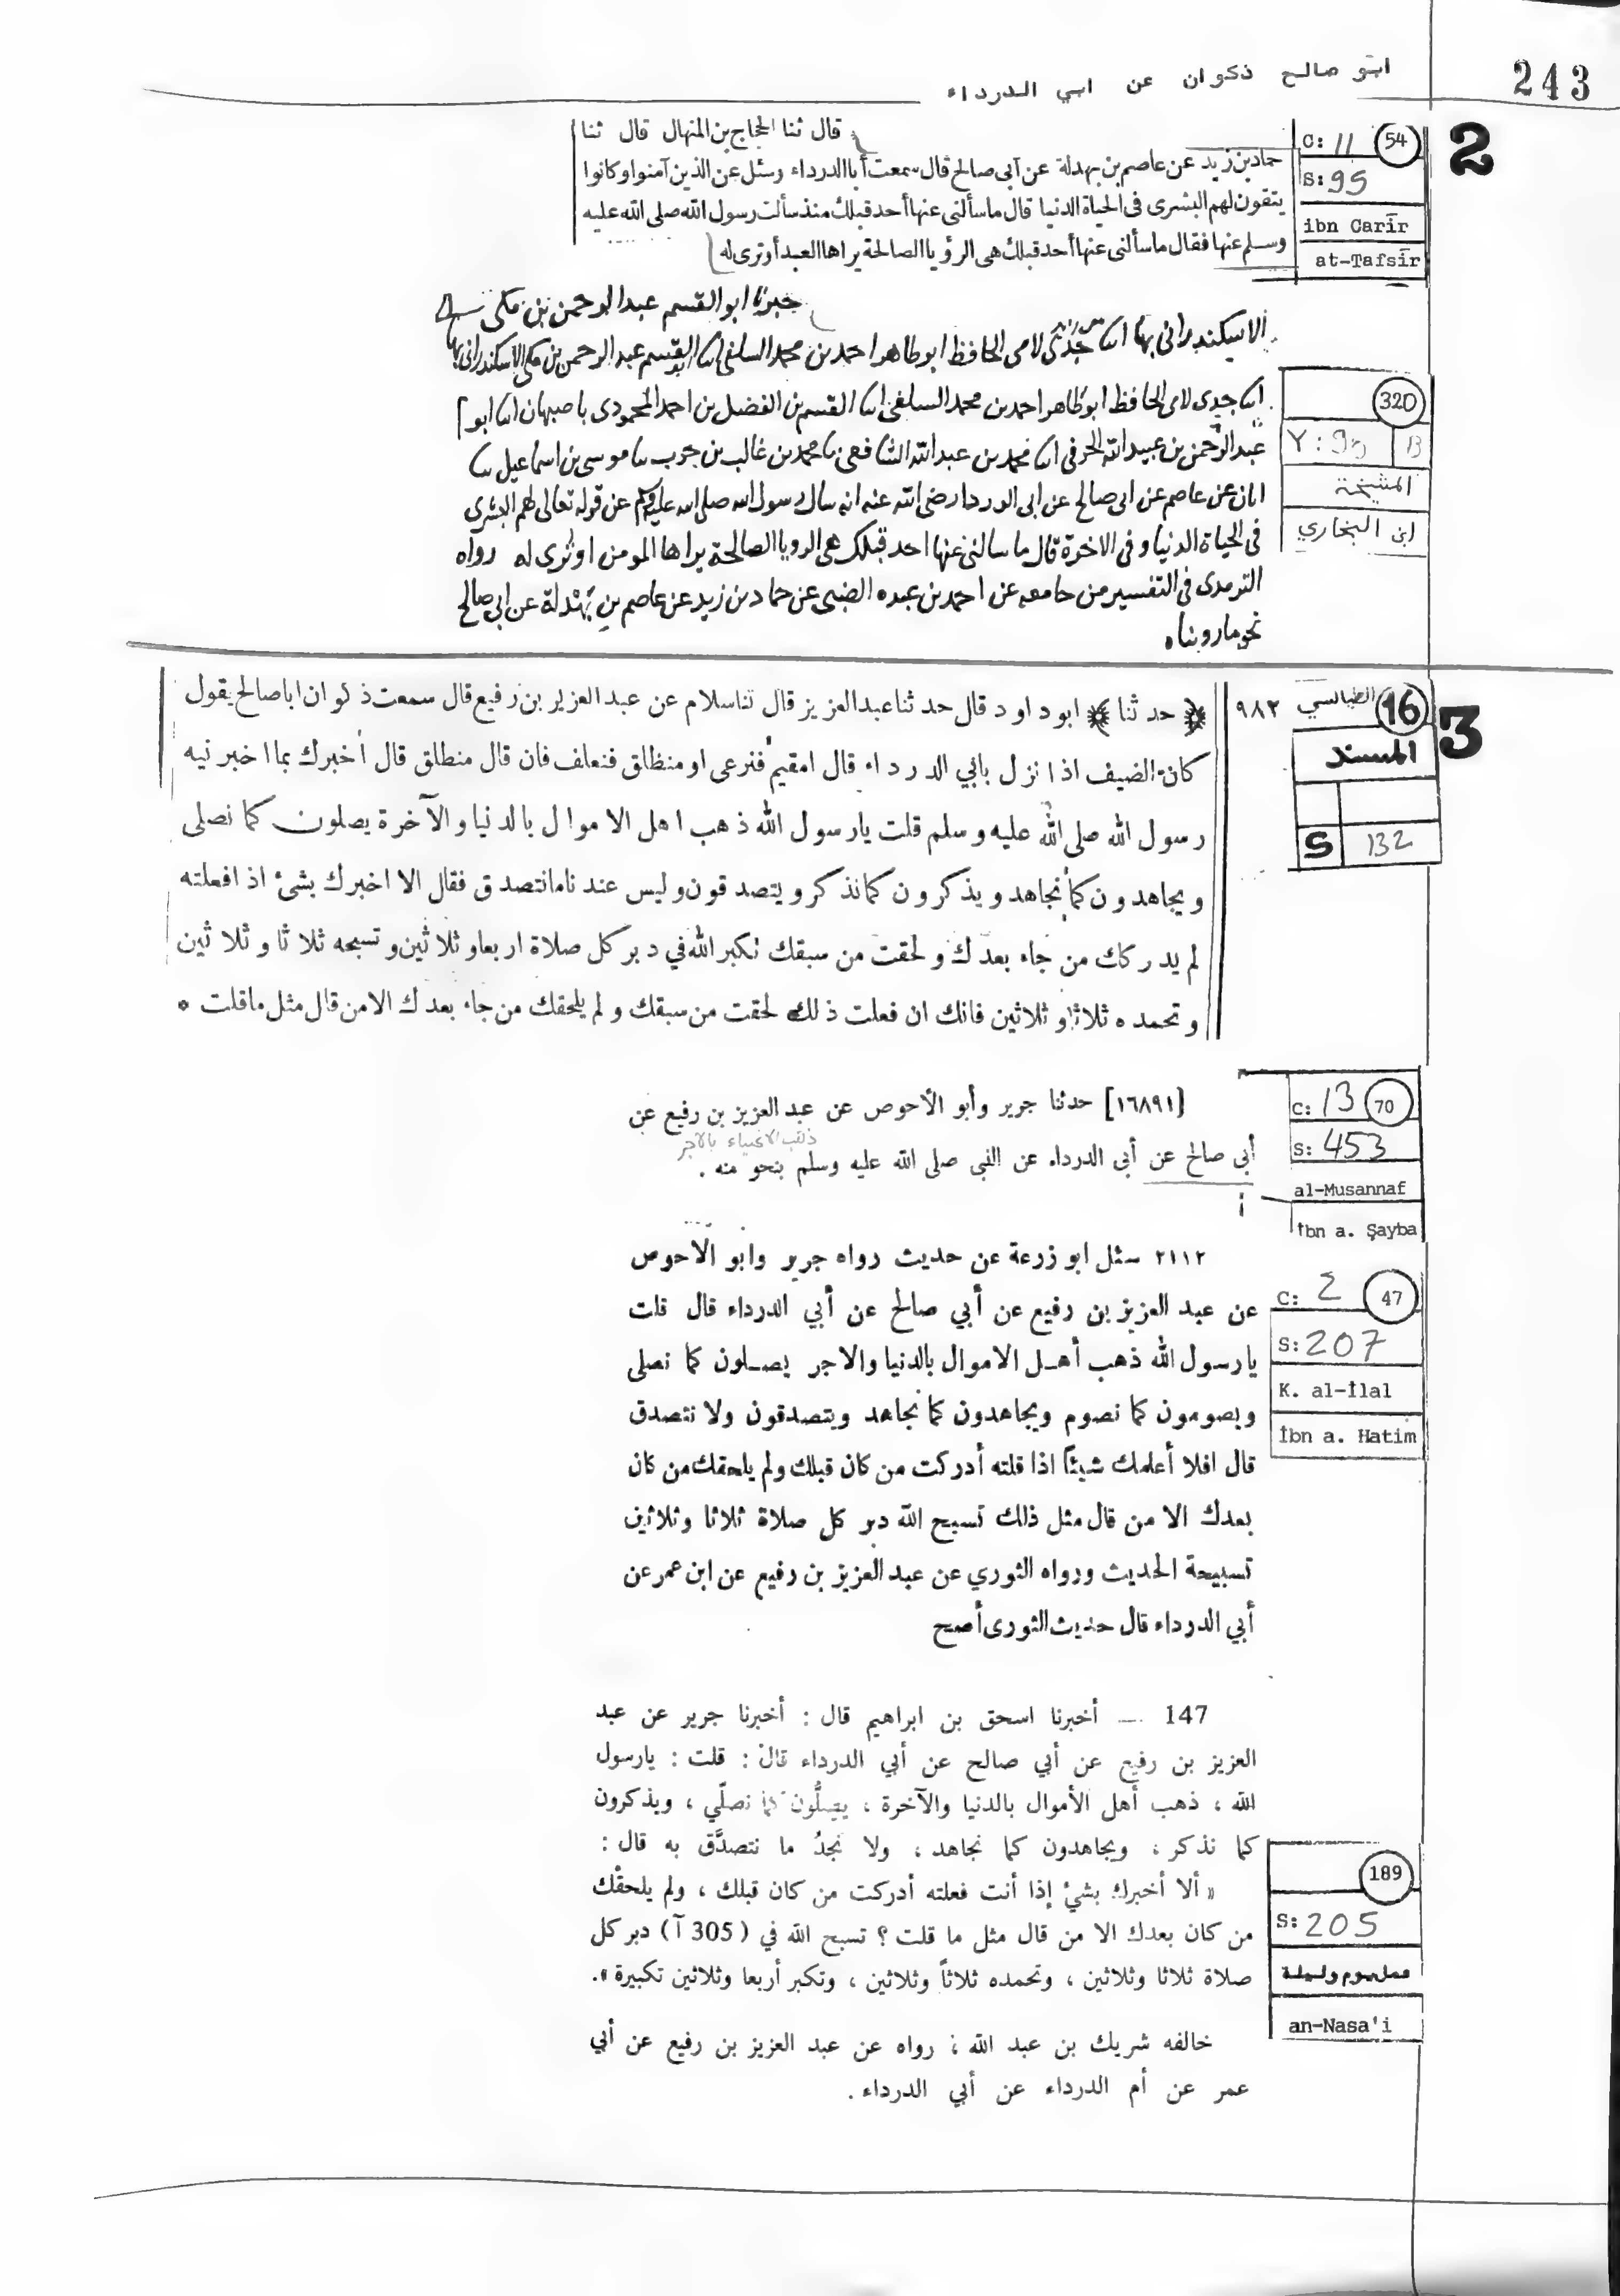 ابو صالح ذكوان عن ابي الدرداء
243
2
C: 11 54
S: 95
ibn Carīr
at-Tafsīr
قال ثنا الحجاج بن المنهال قال ثنا
حماد بن زيد عن عاصم بن بهدلة عن أبى صالح قال سمعت أبا الدرداء وسئل عن الذين آمنوا وكانوا
يتقون لهم البشرى فى الحياة الدنيا قال ما سألنى عنها أحد قبلك منذ سألت رسول الله صلى الله عليه
وسلم عنها فقال ما سألنى عنها أحد قبلك هى الرؤيا الصالحة يراها العبد أو ترى له
320
Y: 13
المشيخة
ابن البخاري
خبرنا ابو القسم عبد الرحمن بن مكى
الاسكندرانى بها انا جدى لامى الحافظ ابو طاهر احمد بن محمد السلفى انا ابو القسم عبد الرحمن بن مكى الاسكندرانى بها
انا جدى لامى الحافظ ابو طاهر احمد بن محمد السلفى انا القسم بن الفضل بن احمد المحمودى باصبهان انا ابو
عبد الرحمن بن عبيد الله الحرفى انا محمد بن عبد الله الشافعى نا محمد بن غالب بن حرب نا موسى بن اسماعيل نا
ابان عن عاصم عن ابى صالح عن ابى الدردا رضى الله عنه انه سال رسول الله صلى الله عليه وسلم عن قوله تعالى لهم البشرى
فى الحياة الدنيا وفى الاخرة قال ما سالنى عنها احد قبلك هى الرويا الصالحة يراها المومن او ترى له رواه
الترمدى فى التفسير من جامعه عن احمد بن عبده الضبى عن حماد بن زيد عن عاصم بن بهدلة عن ابى صالح
نحو ما روينا ه
3
16 الطيالسي ٩٨٢
المسند
S 132
﴿ حدثنا ﴾ ابو داود قال حدثنا عبد العزيز قال ثنا سلام عن عبد العزيز بن رفيع قال سمعت ذكوان ابا صالح يقول
كان الضيف اذا نزل بابي الدرداء قال امقيم فنرعى او منظلق فنعلف فان قال منطلق قال أخبرك بما اخبرنيه
رسول الله صلى الله عليه وسلم قلت يا رسول الله ذهب اهل الاموال بالدنيا والآخرة يصلون كما نصلى
ويجاهدون كما نجاهد ويذكرون كما نذكر ويتصدقون وليس عندنا ما نتصدق فقال الا اخبرك بشئ اذا فعلته
لم يدركك من جاء بعدك ولحقت من سبقك تكبر الله في دبر كل صلاة اربعا وثلاثين وتسبحه ثلاثا وثلاثين
وتحمده ثلاثا وثلاثين فانك ان فعلت ذلك لحقت من سبقك ولم يلحقك من جاء بعدك الا من قال مثل ما قلت *
C: 13 70
S: 453
al-Musannaf
İbn a. Şayba
[١٦٨٩١] حدثنا جرير وأبو الأحوص عن عبد العزيز بن رفيع عن
ذهب الاغنياء بالاجر
أبى صالح عن أبى الدرداء عن النبى صلى الله عليه وسلم بنحو منه .
C: 2 47
S: 207
K. al-İlal
İbn a. Hatim
٢١١٢ سئل ابو زرعة عن حديث رواه جرير وابو الاحوص
عن عبد العزيز بن رفيع عن أبي صالح عن أبي الدرداء قال قلت
يا رسول الله ذهب أهل الاموال بالدنيا والاجر يصلون كما نصلى
ويصومون كما نصوم ويجاهدون كما نجاهد ويتصدقون ولا نتصدق
قال افلا أعلمك شيئاً اذا قلته أدركت من كان قبلك ولم يلحقك من كان
بعدك الا من قال مثل ذلك تسبح الله دبر كل صلاة ثلاثا وثلاثين
تسبيحة الحديث ورواه الثوري عن عبد العزيز بن رفيع عن ابن عمر عن
أبي الدرداء قال حديث الثورى أصح
147 — أخبرنا اسحق بن ابراهيم قال : أخبرنا جرير عن عبد
العزيز بن رفيع عن أبي صالح عن أبي الدرداء قال : قلت : يارسول
الله ، ذهب أهل الأموال بالدنيا والآخرة ، يصلُّون كما نصلّي ، ويذكرون
كما نذكر ، ويجاهدون كما نجاهد ، ولا نجدُ ما نتصدَّق به قال :
« ألا أخبرك بشئ إذا أنت فعلته أدركت من كان قبلك ، ولم يلحقْك
من كان بعدك الا من قال مثل ما قلت ؟ تسبح الله في ( 305 آ ) دبر كل
صلاة ثلاثا وثلاثين ، وتحمده ثلاثاً وثلاثين ، وتكبر أربعا وثلاثين تكبيرة ».
خالفه شريك بن عبد الله ؛ رواه عن عبد العزيز بن رفيع عن أبي
عمر عن أم الدرداء عن أبي الدرداء .
189
S: 205
عمل يوم وليلة
an-Nasa'i